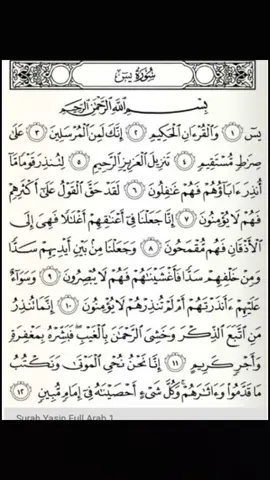 سُورَةُ يسٓ
بِسْمِ اللَّهِ الرَّحْمَٰنِ الرَّحِيمِ
يسٓ ١ وَالْقُرْءَانِ الْحَكِيمِ ٢ إِنَّكَ لَمِنَ الْمُرْسَلِينَ ٣ عَلَىٰ
صِرَٰطٍ مُّسْتَقِيمٍ ٤ تَنزِيلَ الْعَزِيزِ الرَّحِيمِ ٥ لِتُنذِرَ قَوْمًا مَّا
أُنذِرَ ءَابَآؤُهُمْ فَهُمْ غَٰفِلُونَ ٦ لَقَدْ حَقَّ الْقَوْلُ عَلَىٰٓ أَكْثَرِهِمْ
فَهُمْ لَا يُؤْمِنُونَ ٧ إِنَّا جَعَلْنَا فِىٓ أَعْنَٰقِهِمْ أَغْلَٰلًا فَهِىَ إِلَى
الْأَذْقَانِ فَهُم مُّقْمَحُونَ ٨ وَجَعَلْنَا مِنۢ بَيْنِ أَيْدِيهِمْ سَدًّا
وَمِنْ خَلْفِهِمْ سَدًّا فَأَغْشَيْنَٰهُمْ فَهُمْ لَا يُبْصِرُونَ ٩ وَسَوَآءٌ
عَلَيْهِمْ ءَأَنذَرْتَهُمْ أَمْ لَمْ تُنذِرْهُمْ لَا يُؤْمِنُونَ ١٠ إِنَّمَا تُنذِرُ
مَنِ اتَّبَعَ الذِّكْرَ وَخَشِىَ الرَّحْمَٰنَ بِالْغَيْبِ فَبَشِّرْهُ بِمَغْفِرَةٍ
وَأَجْرٍ كَرِيمٍ ١١ إِنَّا نَحْنُ نُحْىِ الْمَوْتَىٰ وَنَكْتُبُ
مَا قَدَّمُوا۟ وَءَاثَٰرَهُمْ وَكُلَّ شَىْءٍ أَحْصَيْنَٰهُ فِىٓ إِمَامٍ مُّبِينٍ ١٢
Surah Yasin Full Arab 1